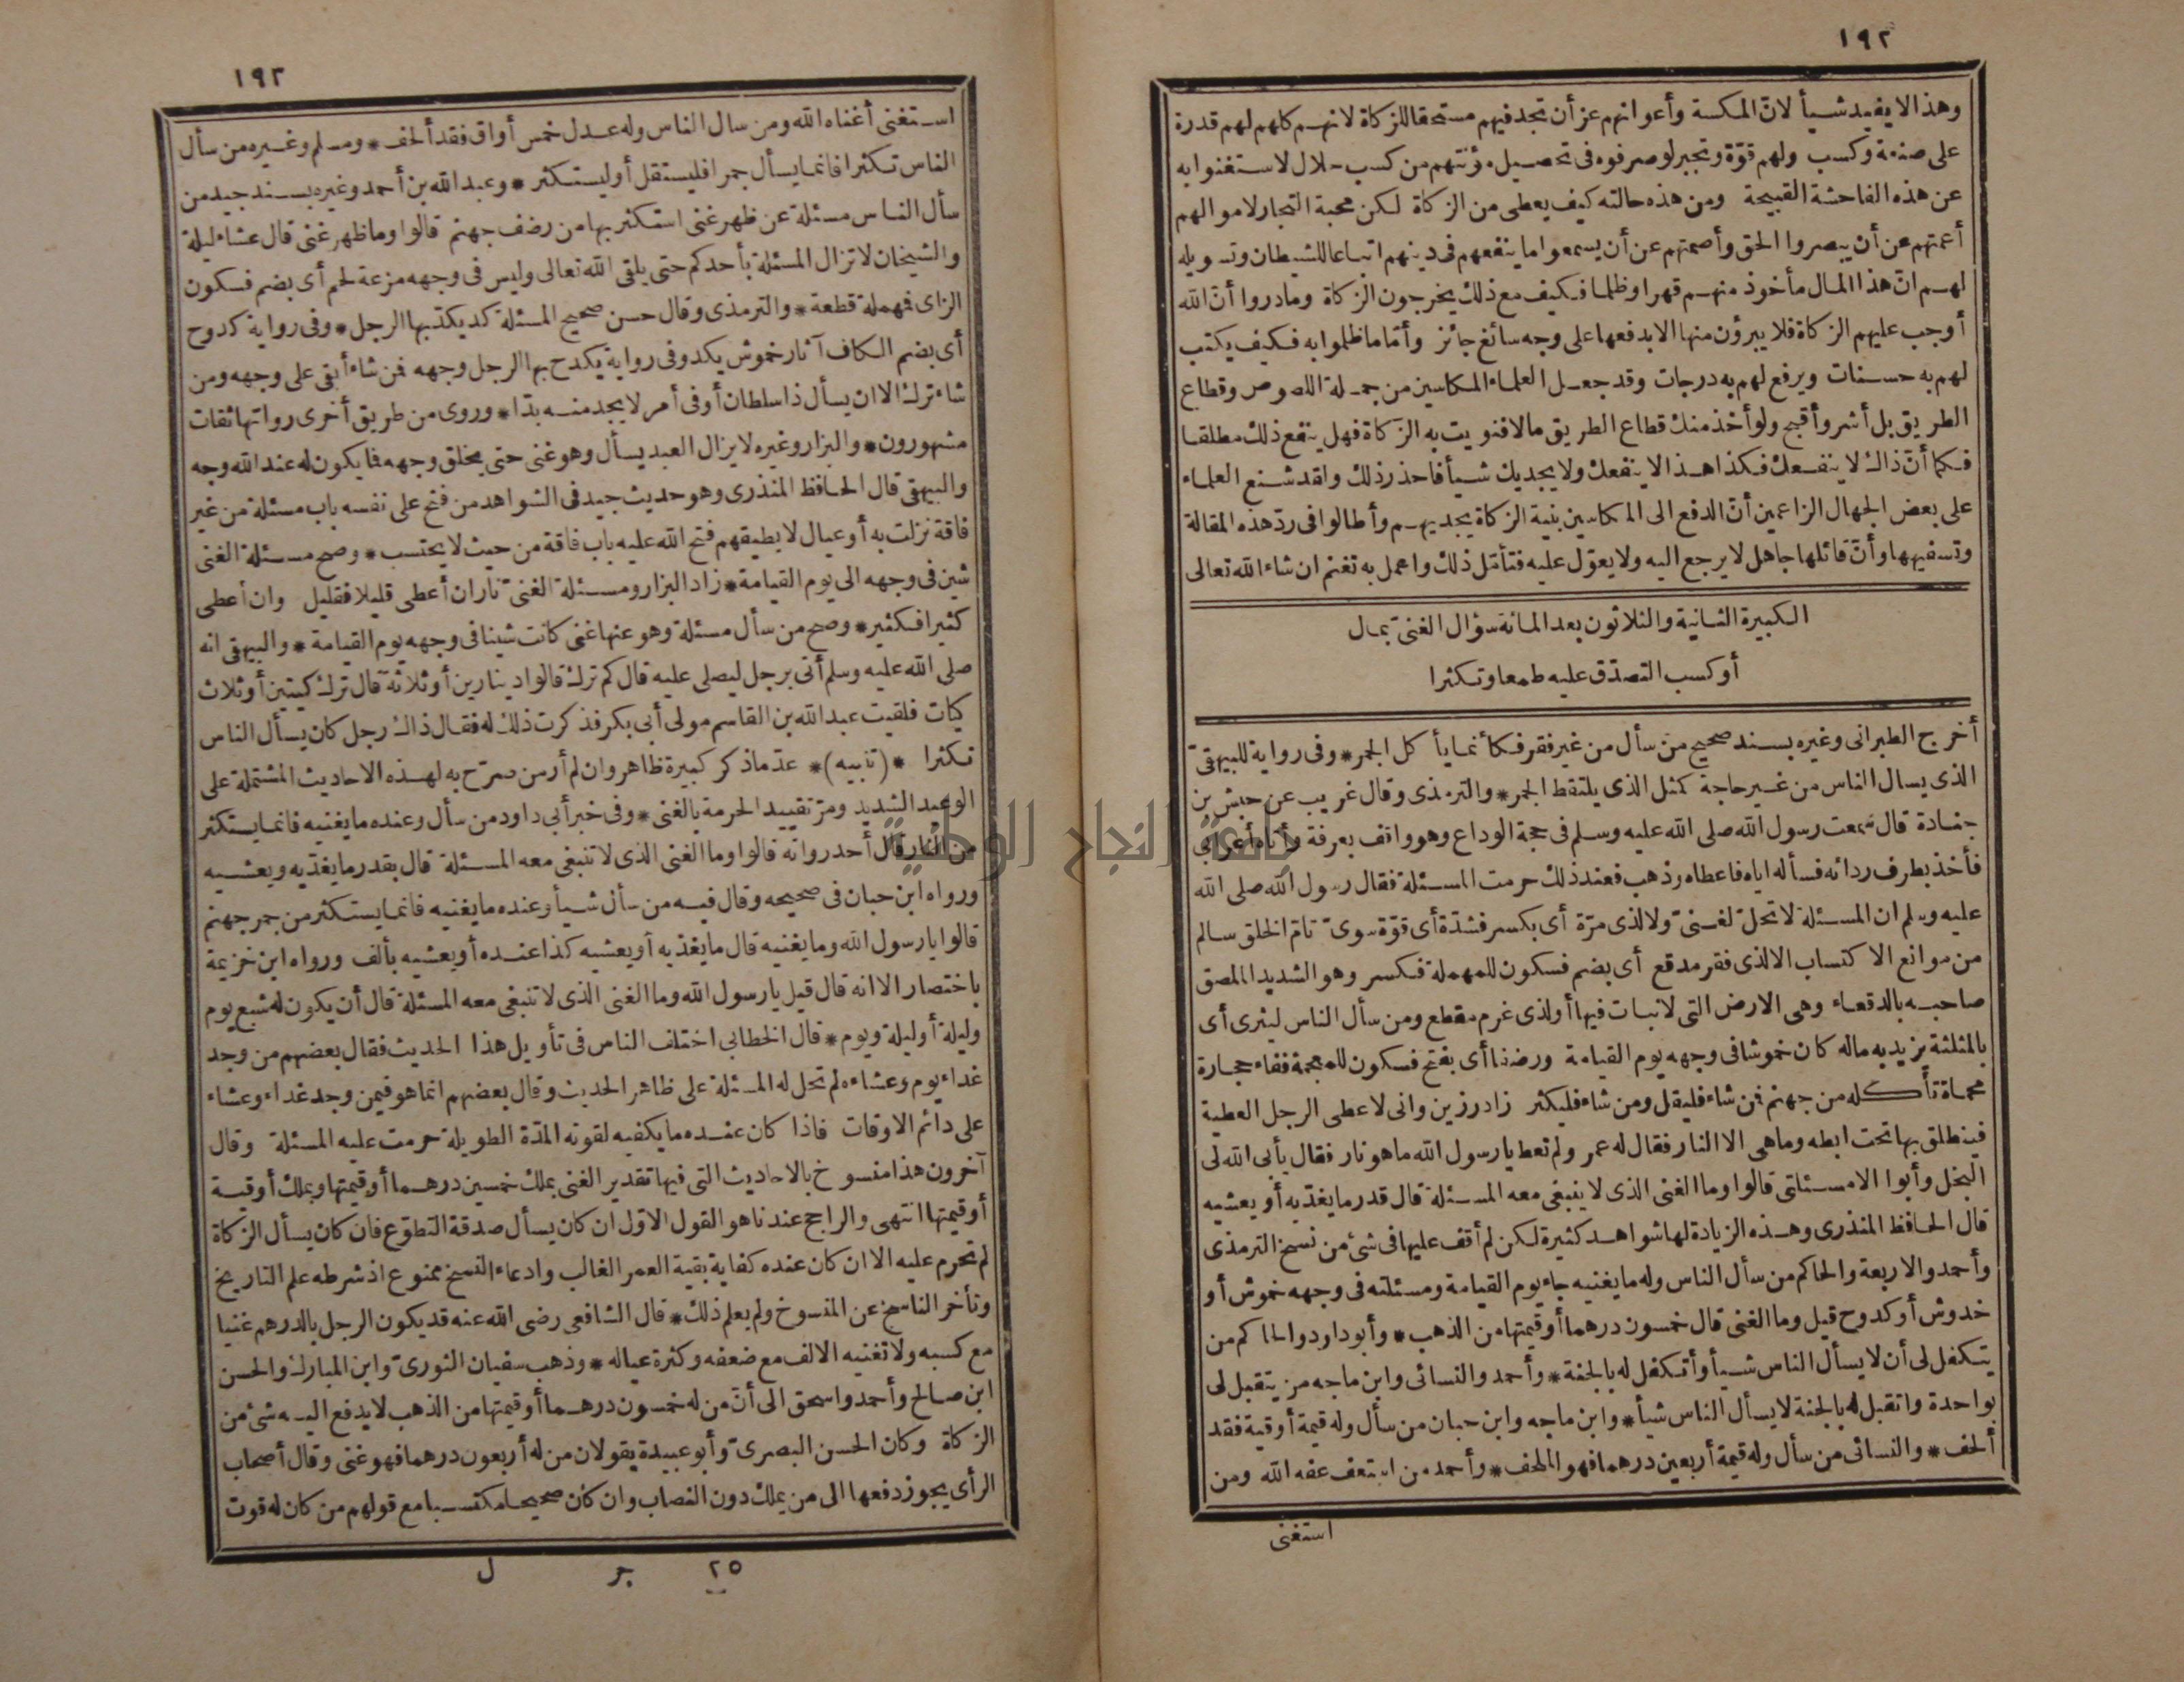 ١٩٢
وهذا لا يفيد شيأ لان المكسة وأعوانهم عز أن تجد فيهم مستحقا للزكاة لانهم كلهم لهم قدرة
على صنعة وكسب ولهم قوّة وتجبر لو صرفوه فى تحصيل مؤنتهم من كسب حلال لاستغنوا به
عن هذه الفاحشة القبيحة ومن هذه حالته كيف يعطى من الزكاة لكن محبة التجار لاموالهم
أعمتهم عن أن يبصروا الحق وأصمتهم عن أن يسمعوا ما ينفعهم فى دينهم اتباعا للشيطان وتسويله
لهم انّ هذا المال مأخوذ منهم قهرا وظلما فكيف مع ذلك يخرجون الزكاة وما دروا أنّ الله
أوجب عليهم الزكاة فلا يبرؤن منها الا بدفعها على وجه سائغ جائز وأمّا ما ظلموا به فكيف يكتب
لهم به حسنات ويرفع لهم به درجات وقد جعل العلماء المكاسين من جملة اللصوص وقطاع
الطريق بل أشر وأقبح ولو أخذ منك قطاع الطريق مالا فنويت به الزكاة فهل ينفع ذلك مطلقا
فكما أنّ ذاك لا ينفعك فكذا هذا لا ينفعك ولا يجديك شيأ فاحذر ذلك ولقد شنع العلماء
على بعض الجهال الزاعمين أنّ الدفع الى المكاسين بنية الزكاة يجديهم وأطالوا فى ردّ هذه المقالة
وتسفيهها وأنّ قائلها جاهل لا يرجع اليه ولا يعوّل عليه فتأمّل ذلك واعمل به تغنم ان شاء الله تعالى
الكبيرة الثانية والثلاثون بعد المائة سؤال الغنىّ بمال
أو كسب التصدّق عليه طمعا وتكثرا
أخرج الطبرانى وغيره بسند صحيح من سأل من غير فقر فكأنما يأكل الجمر * وفى رواية للبيهقىّ
الذى يسال الناس من غير حاجة كمثل الذى يلتقط الجمر * والترمذى وقال غريب عن حبشى بن
جنادة قال سمعت رسول الله صلى الله عليه وسلم فى حجة الوداع وهو واقف بعرفة وأتاه أعرابى
فأخذ بطرف ردائه فسأله اياه فاعطاه وذهب فعند ذلك حرمت المسئلة فقال رسول الله صلى الله
عليه وسلم ان المسئلة لا تحلّ لغنىّ ولا لذى مرّة أى بكسر فشدّة أى قوّة سوىّ تامّ الخلق سالم
من موانع الاكتساب الا لذى فقر مدقع أى بضم فسكون للمهملة فكسر وهو الشديد الملصق
صاحبه بالدقعاء وهى الارض التى لا نبات فيها أو لذى غرم مفظع ومن سأل الناس ليثرى أى
بالمثلثة يزيد به ماله كان خموشا فى وجهه يوم القيامة ورضفا أى بفتح فسكون للمعجمة ففاء حجارة
محماة تأكله من جهنم فمن شاء فليقل ومن شاء فليكثر زاد رزين وانى لاعطى الرجل العطية
فينطلق بها تحت ابطه وما هى الا النار فقال له عمر ولم تعط يارسول الله ما هو نار فقال يأبى الله لى
البخل وأبوا الا مسئلتى قالوا وما الغنى الذى لا ينبغى معه المسئلة قال قدر ما يغدّيه أو يعشيه
قال الحافظ المنذرى وهذه الزيادة لها شواهد كثيرة لكن لم أقف عليها فى شئ من نسخ الترمذى
وأحمد والاربعة والحاكم من سأل الناس وله ما يغنيه جاء يوم القيامة ومسئلته فى وجهه خموش أو
خدوش أو كدوح قيل وما الغنى قال خمسون درهما أو قيمتها من الذهب * وأبو داود والحاكم من
يتكفل لى أن لا يسأل الناس شيأ وأتكفل له بالجنة * وأحمد والنسائى وابن ماجه من يتقبل لى
بواحدة واتقبل له بالجنة لا يسأل الناس شيأ * وابن ماجه وابن حبان من سأل وله قيمة أوقية فقد
ألحف * والنسائى من سأل وله قيمة أربعين درهما فهو الملحف * وأحمد من استعف عفه الله ومن
استغنى
١٩٣
استغنى أغناه الله ومن سال الناس وله عدل خمس أواق فقد ألحف * ومسلم وغيره من سأل
الناس تكثرا فانما يسأل جمرا فليستقل أو ليستكثر * وعبد الله بن أحمد وغيره بسند جيد من
سأل الناس مسئلة عن ظهر غنى استكثر بها من رضف جهنم قالوا وما ظهر غنى قال عشاء ليلة
والشيخان لا تزال المسئلة بأحدكم حتى يلقى الله تعالى وليس فى وجهه مزعة لحم أى بضم فسكون
الزاى فمهملة قطعة * والترمذى وقال حسن صحيح المسئلة كد يكد بها الرجل * وفى رواية كدوح
أى بضم الكاف آثار خموش يكد وفى رواية يكدح بها الرجل وجهه فمن شاء أبقى على وجهه ومن
شاء ترك الا ان يسأل ذا سلطان أو فى أمر لا يجد منه بدّا * وروى من طريق أخرى رواتها ثقات
مشهورون * والبزار وغيره لا يزال العبد يسأل وهو غنى حتى يخلق وجهه فما يكون له عند الله وجه
والبيهقى قال الحافظ المنذرى وهو حديث جيد فى الشواهد من فتح على نفسه باب مسئلة من غير
فاقة نزلت به أو عيال لا يطيقهم فتح الله عليه باب فاقة من حيث لا يحتسب * وصح مسئلة الغنى
شين فى وجهه الى يوم القيامة * زاد البزار ومسئلة الغنىّ نار ان أعطى قليلا فقليل وان أعطى
كثيرا فكثير * وصح من سأل مسئلة وهو عنها غنى كانت شينا فى وجهه يوم القيامة * والبيهقى انه
صلى الله عليه وسلم أتى برجل ليصلى عليه قال كم ترك قالوا دينارين أو ثلاثة قال ترك كيتين أو ثلاث
كيات فلقيت عبد الله بن القاسم مولى أبى بكر فذكرت ذلك له فقال ذاك رجل كان يسأل الناس
تكثرا * (تنبيه) * عدّ ما ذكر كبيرة ظاهر وان لم أر من صرّح به لهذه الاحاديث المشتملة على
الوعيد الشديد ومرّ تقييد الحرمة بالغنى * وفى خبر أبى داود من سأل وعنده ما يغنيه فانما يستكثر
من النار قال أحد رواته قالوا وما الغنى الذى لا تنبغى معه المسئلة قال بقدر ما يغدّيه ويعشيه
ورواه ابن حبان فى صحيحه وقال فيه من سأل شيأ وعنده ما يغنيه فانما يستكثر من جمر جهنم
قالوا يارسول الله وما يغنيه قال ما يغدّيه أو يعشيه كذا عنده أو يعشيه بألف ورواه ابن خزيمة
باختصار الا انه قال قيل يارسول الله وما الغنى الذى لا تنبغى معه المسئلة قال أن يكون له شبع يوم
وليلة أو ليلة ويوم * قال الخطابى اختلف الناس فى تأويل هذا الحديث فقال بعضهم من وجد
غداء يوم وعشاءه لم تحل له المسئلة على ظاهر الحديث وقال بعضهم انما هو فيمن وجد غداء وعشاء
على دائم الاوقات فاذا كان عنده ما يكفيه لقوته المدّة الطويلة حرمت عليه المسئلة وقال
آخرون هذا منسوخ بالاحاديث التى فيها تقدير الغنى بملك خمسين درهما أو قيمتها وبملك أوقية
أو قيمتها انتهى والراجح عندنا هو القول الاوّل ان كان يسأل صدقة التطوّع فان كان يسأل الزكاة
لم تحرم عليه الا ان كان عنده كفاية بقية العمر الغالب وادعاء النسخ ممنوع اذ شرطه علم التاريخ
وتأخر الناسخ عن المنسوخ ولم يعلم ذلك * قال الشافعى رضى الله عنه قد يكون الرجل بالدرهم غنيا
مع كسبه ولا تغنيه الالف مع ضعفه وكثرة عياله * وذهب سفيان الثورىّ وابن المبارك والحسن
ابن صالح وأحمد واسحق الى أنّ من له خمسون درهما أو قيمتها من الذهب لا يدفع اليه شئ من
الزكاة وكان الحسن البصرىّ وأبو عبيدة يقولان من له أربعون درهما فهو غنى وقال أصحاب
الرأى يجوز دفعها الى من يملك دون النصاب وان كان صحيحا مكتسبا مع قولهم من كان له قوت
٢٥ جر ل
جامعة النجاح الوطنية